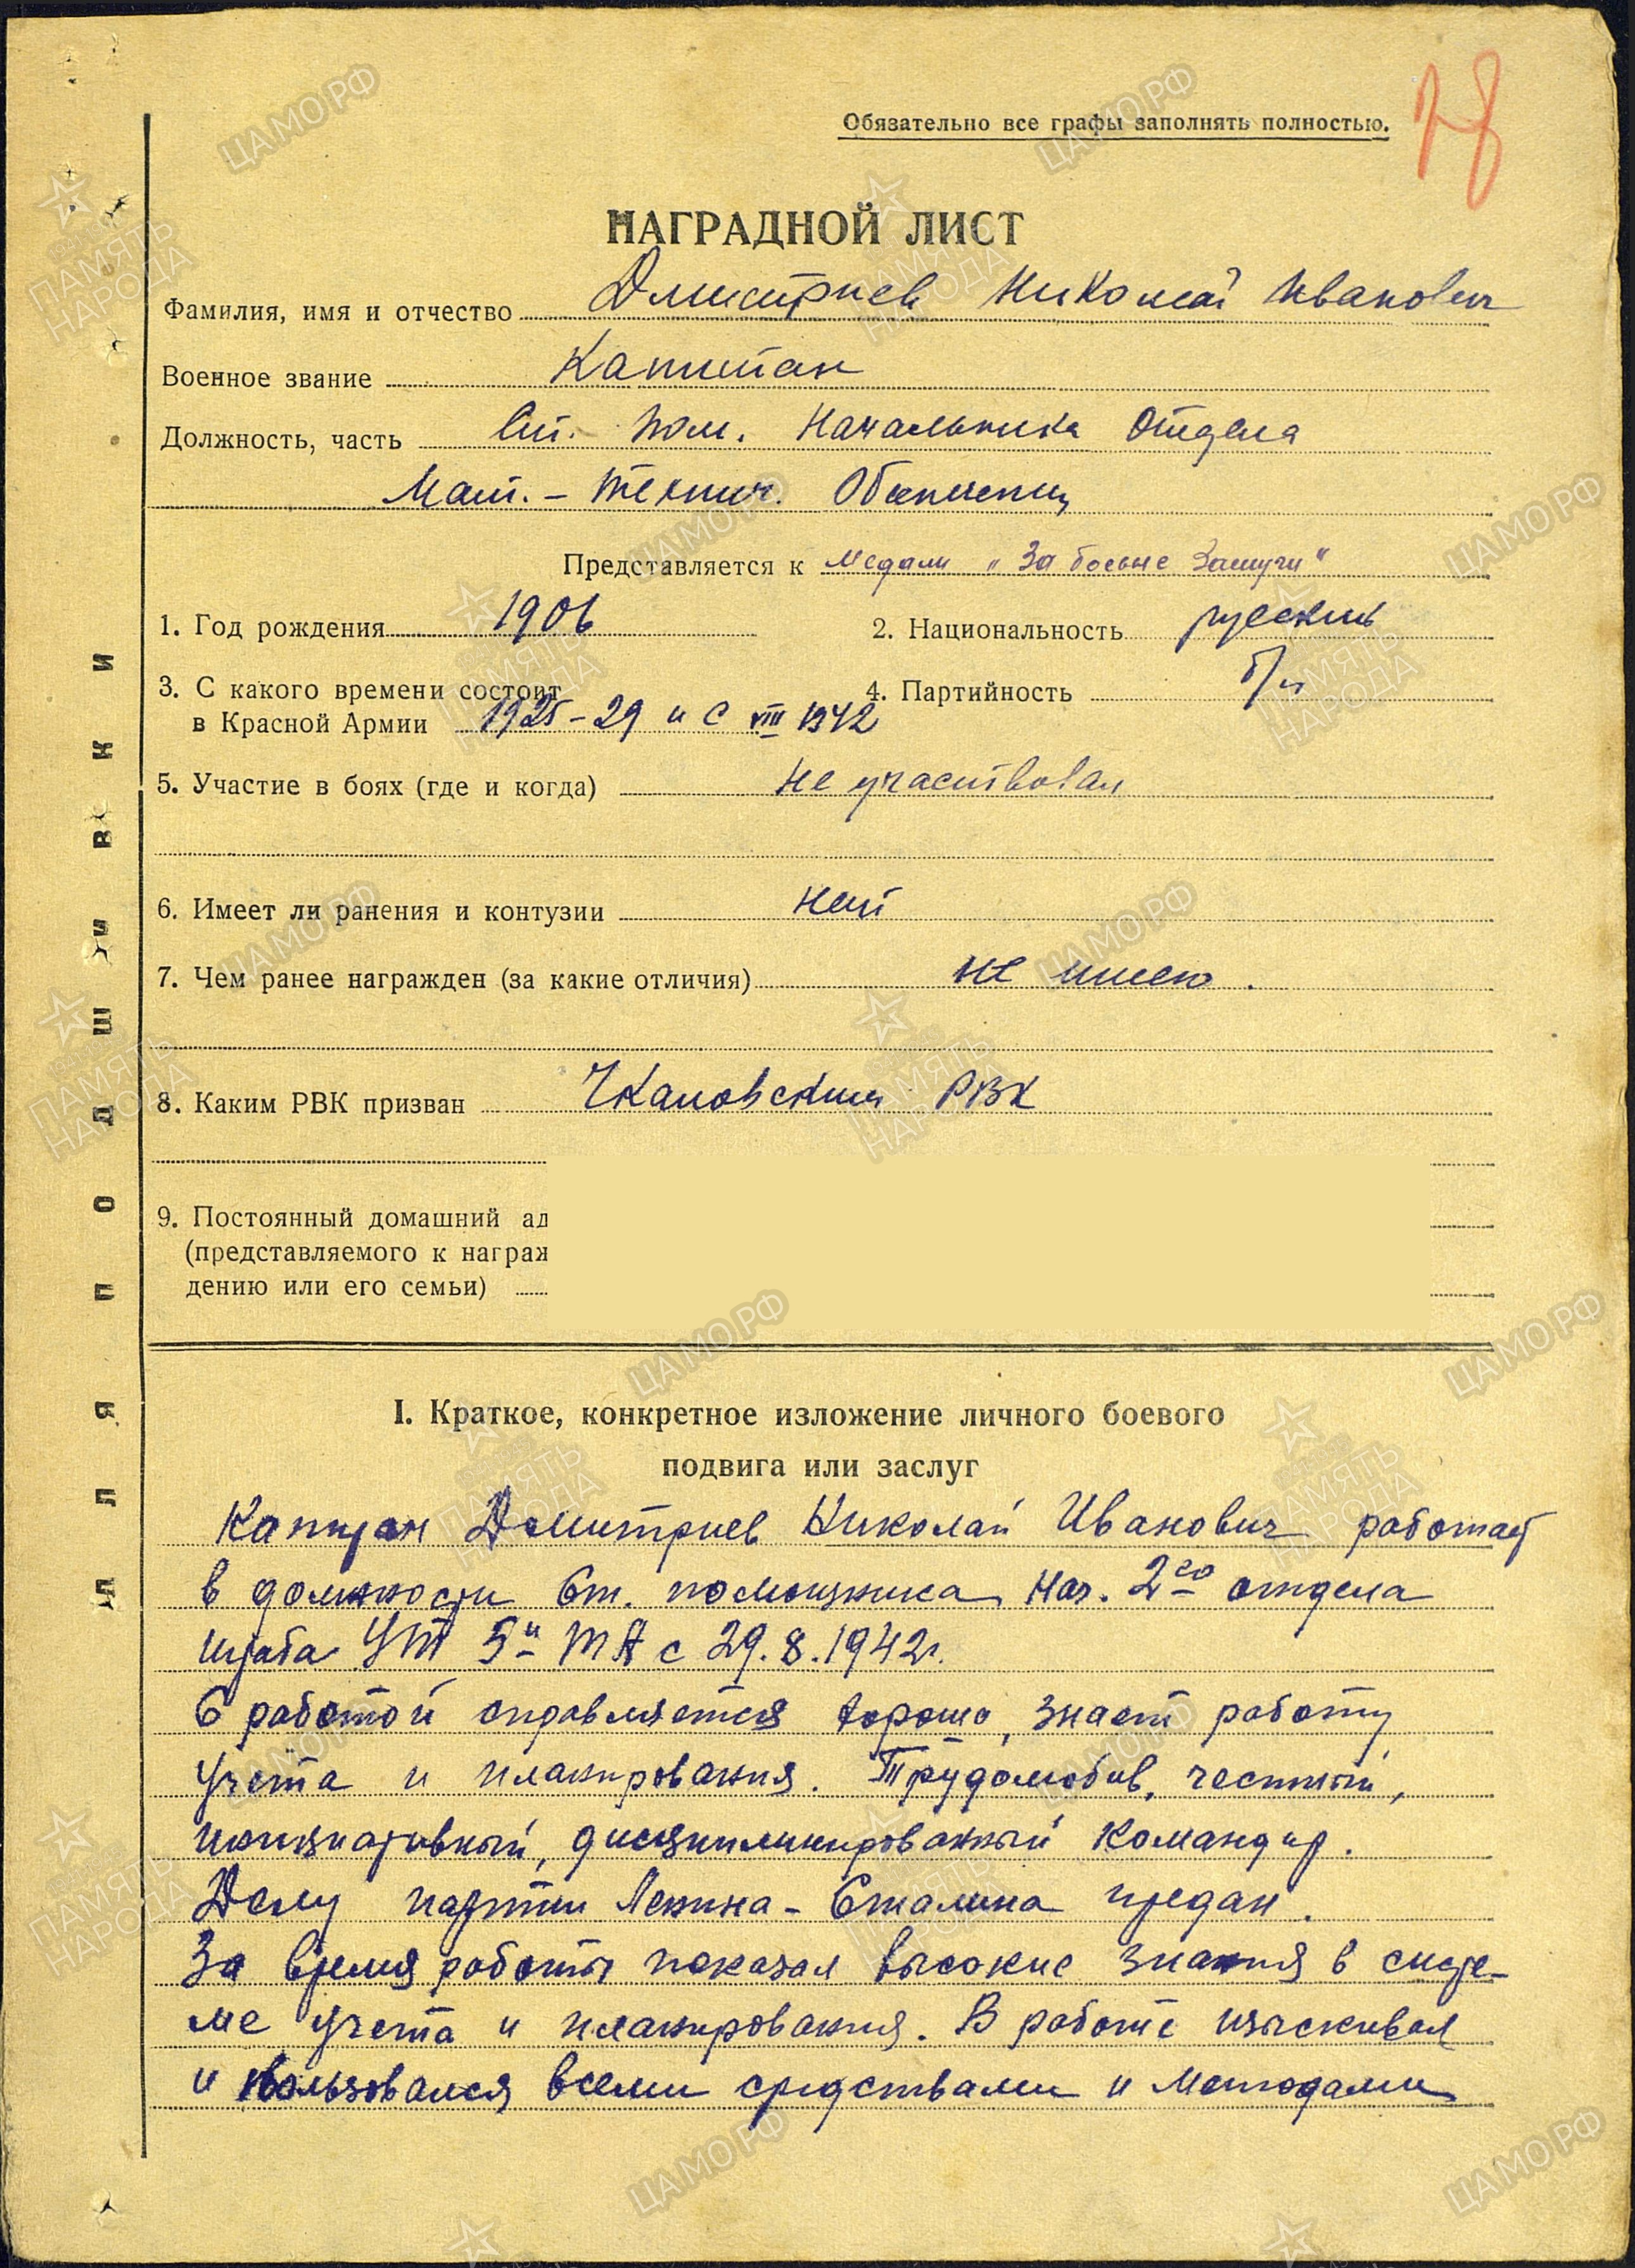 78
Обязательно все графы заполнять полностью.
НАГРАДНОЙ ЛИСТ
Фамилия, имя и отчество Дмитриев Николай Иванович
Военное звание Капитан
Должность, часть Ст. Пом. Начальника Отдела
Мат. - Технич. Обеспечения
Представляется к медали „За боевые Заслуги"
1. Год рождения 1906 2. Национальность русский
3. С какого времени состоит 4. Партийность б/п
в Красной Армии 1925-29 и с VIII 1942
5. Участие в боях (где и когда) не участвовал
6. Имеет ли ранения и контузии нет
7. Чем ранее награжден (за какие отличия) не имею.
8. Каким РВК призван Чкаловским РВК
9. Постоянный домашний ад
(представляемого к награж
дению или его семьи)
I. Краткое, конкретное изложение личного боевого
подвига или заслуг
Капитан Дмитриев Николай Иванович работает
в должности Ст. помощника Нач. 2го отдела
штаба УТ 5й ТА с 29.8.1942г.
С работой справляется хорошо, знает работу
учета и планирования. Трудолюбив, честный,
инициативный, дисциплинированный командир.
Делу партии Ленина - Сталина предан.
За время работы показал высокие знания в систе-
ме учета и планирования. В работе изыскивал
и пользовался всеми средствами и методами
ДЛЯ ПОДШИВКИ
ЦАМО.РФ
ПАМЯТЬ
НАРОДА